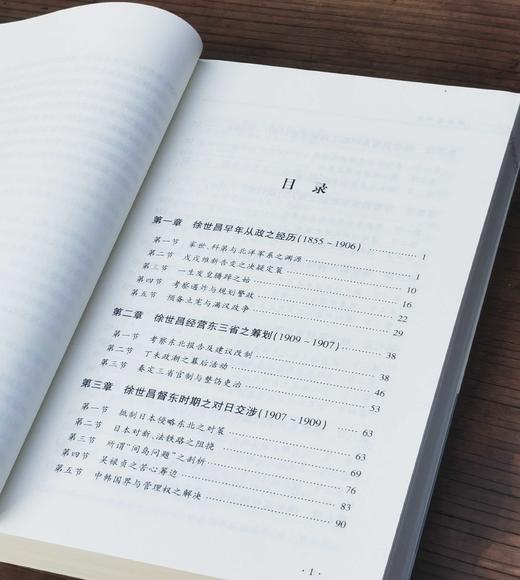 目 录
第一章 徐世昌早年从政之经历(1855~1906) 1
第一节 家世、科第与北洋军系之渊源 1
第二节 戊戌维新告变之决疑定策 10
第三节 一生发皇腾踔之始 16
第四节 考察遇炸与规划警政 22
第五节 预备立宪与满汉政争 29
第二章 徐世昌经营东三省之筹划(1909~1907) 38
第一节 考察东北报告及建议改制 38
第二节 丁未政潮之幕后活动 46
第三节 奏定三省官制与整饬吏治 53
第三章 徐世昌督东时期之对日交涉(1907~1909) 63
第一节 抵制日本侵略东北之对策 63
第二节 日本对新、法铁路之阻挠 69
第三节 所谓“间岛问题”之剖析 76
第四节 吴禄贞之苦心筹边 83
第五节 中韩国界与管理权之解决 90
· 1 ·